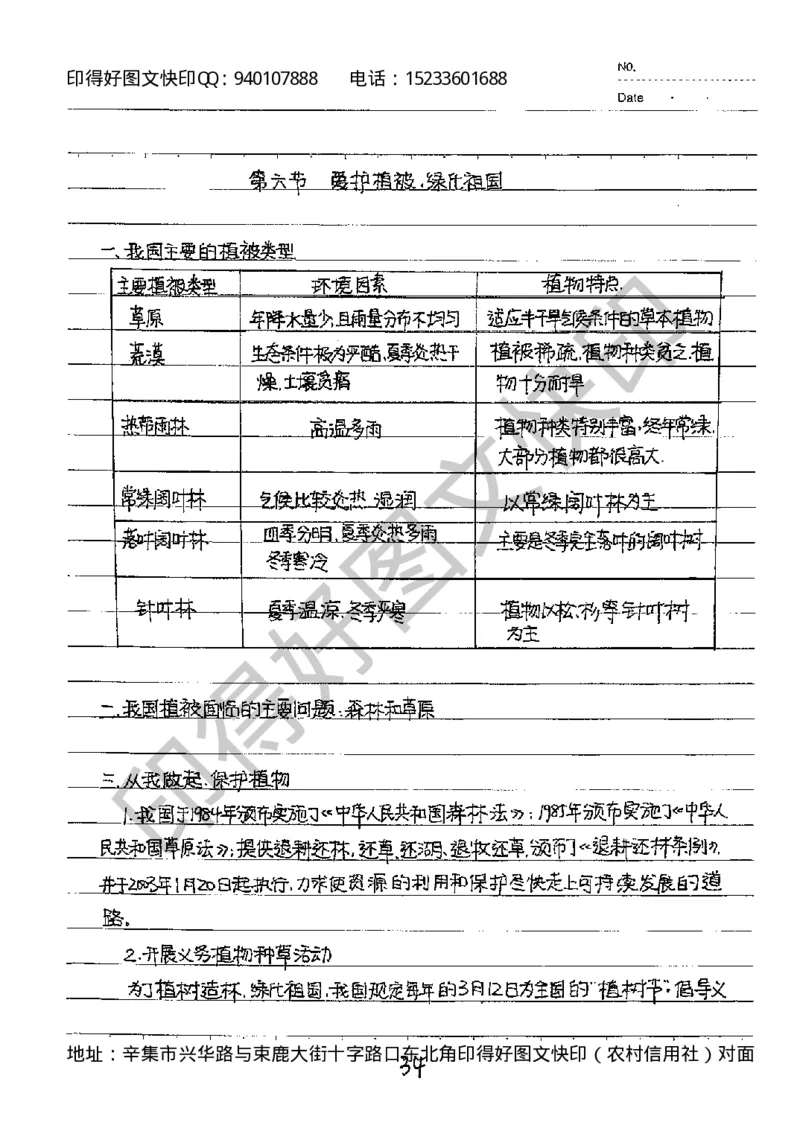 印得好图文快印QQ：940107888 电话：15233601688
No.
Date
第六节 爱护植被，绿化祖国
一、我国主要的植被类型
主要植被类型 环境因素 植物特点
草原 年降水量少，且雨量分布不均匀 适应半干旱气候条件的草本植物
荒漠 生态条件极为严酷，夏季炎热干 植被稀疏，植物种类贫乏，植
燥，土壤贫瘠 物十分耐旱
热带雨林 高温多雨 植物种类特别丰富，终年常绿，
大部分植物都很高大.
常绿阔叶林 气候比较炎热 湿润 以常绿阔叶林为主
落叶阔叶林 四季分明，夏季炎热多雨 主要是冬季完全落叶的阔叶树
冬季寒冷
针叶林 夏季温凉，冬季严寒 植物以松、杉等针叶树
为主
二、我国植被面临的主要问题：森林和草原
三、从我做起，保护植物
1.我国于1984年颁布实施了《中华人民共和国森林法》；1985年颁布实施了《中华人
民共和国草原法》；提供退耕还林，还草，还湖、退牧还草，颁布了《退耕还林条例》，
并于2003年1月20日起执行，力求使资源的利用和保护尽快走上可持续发展的道
路。
2.开展义务植物种草活动
为了植树造林，绿化祖国，我国规定每年的3月12日为全国的“植树节”；倡导义
地址：辛集市兴华路与束鹿大街十字路口东北角印得好图文快印（农村信用社）对面
34
印得好图文快印